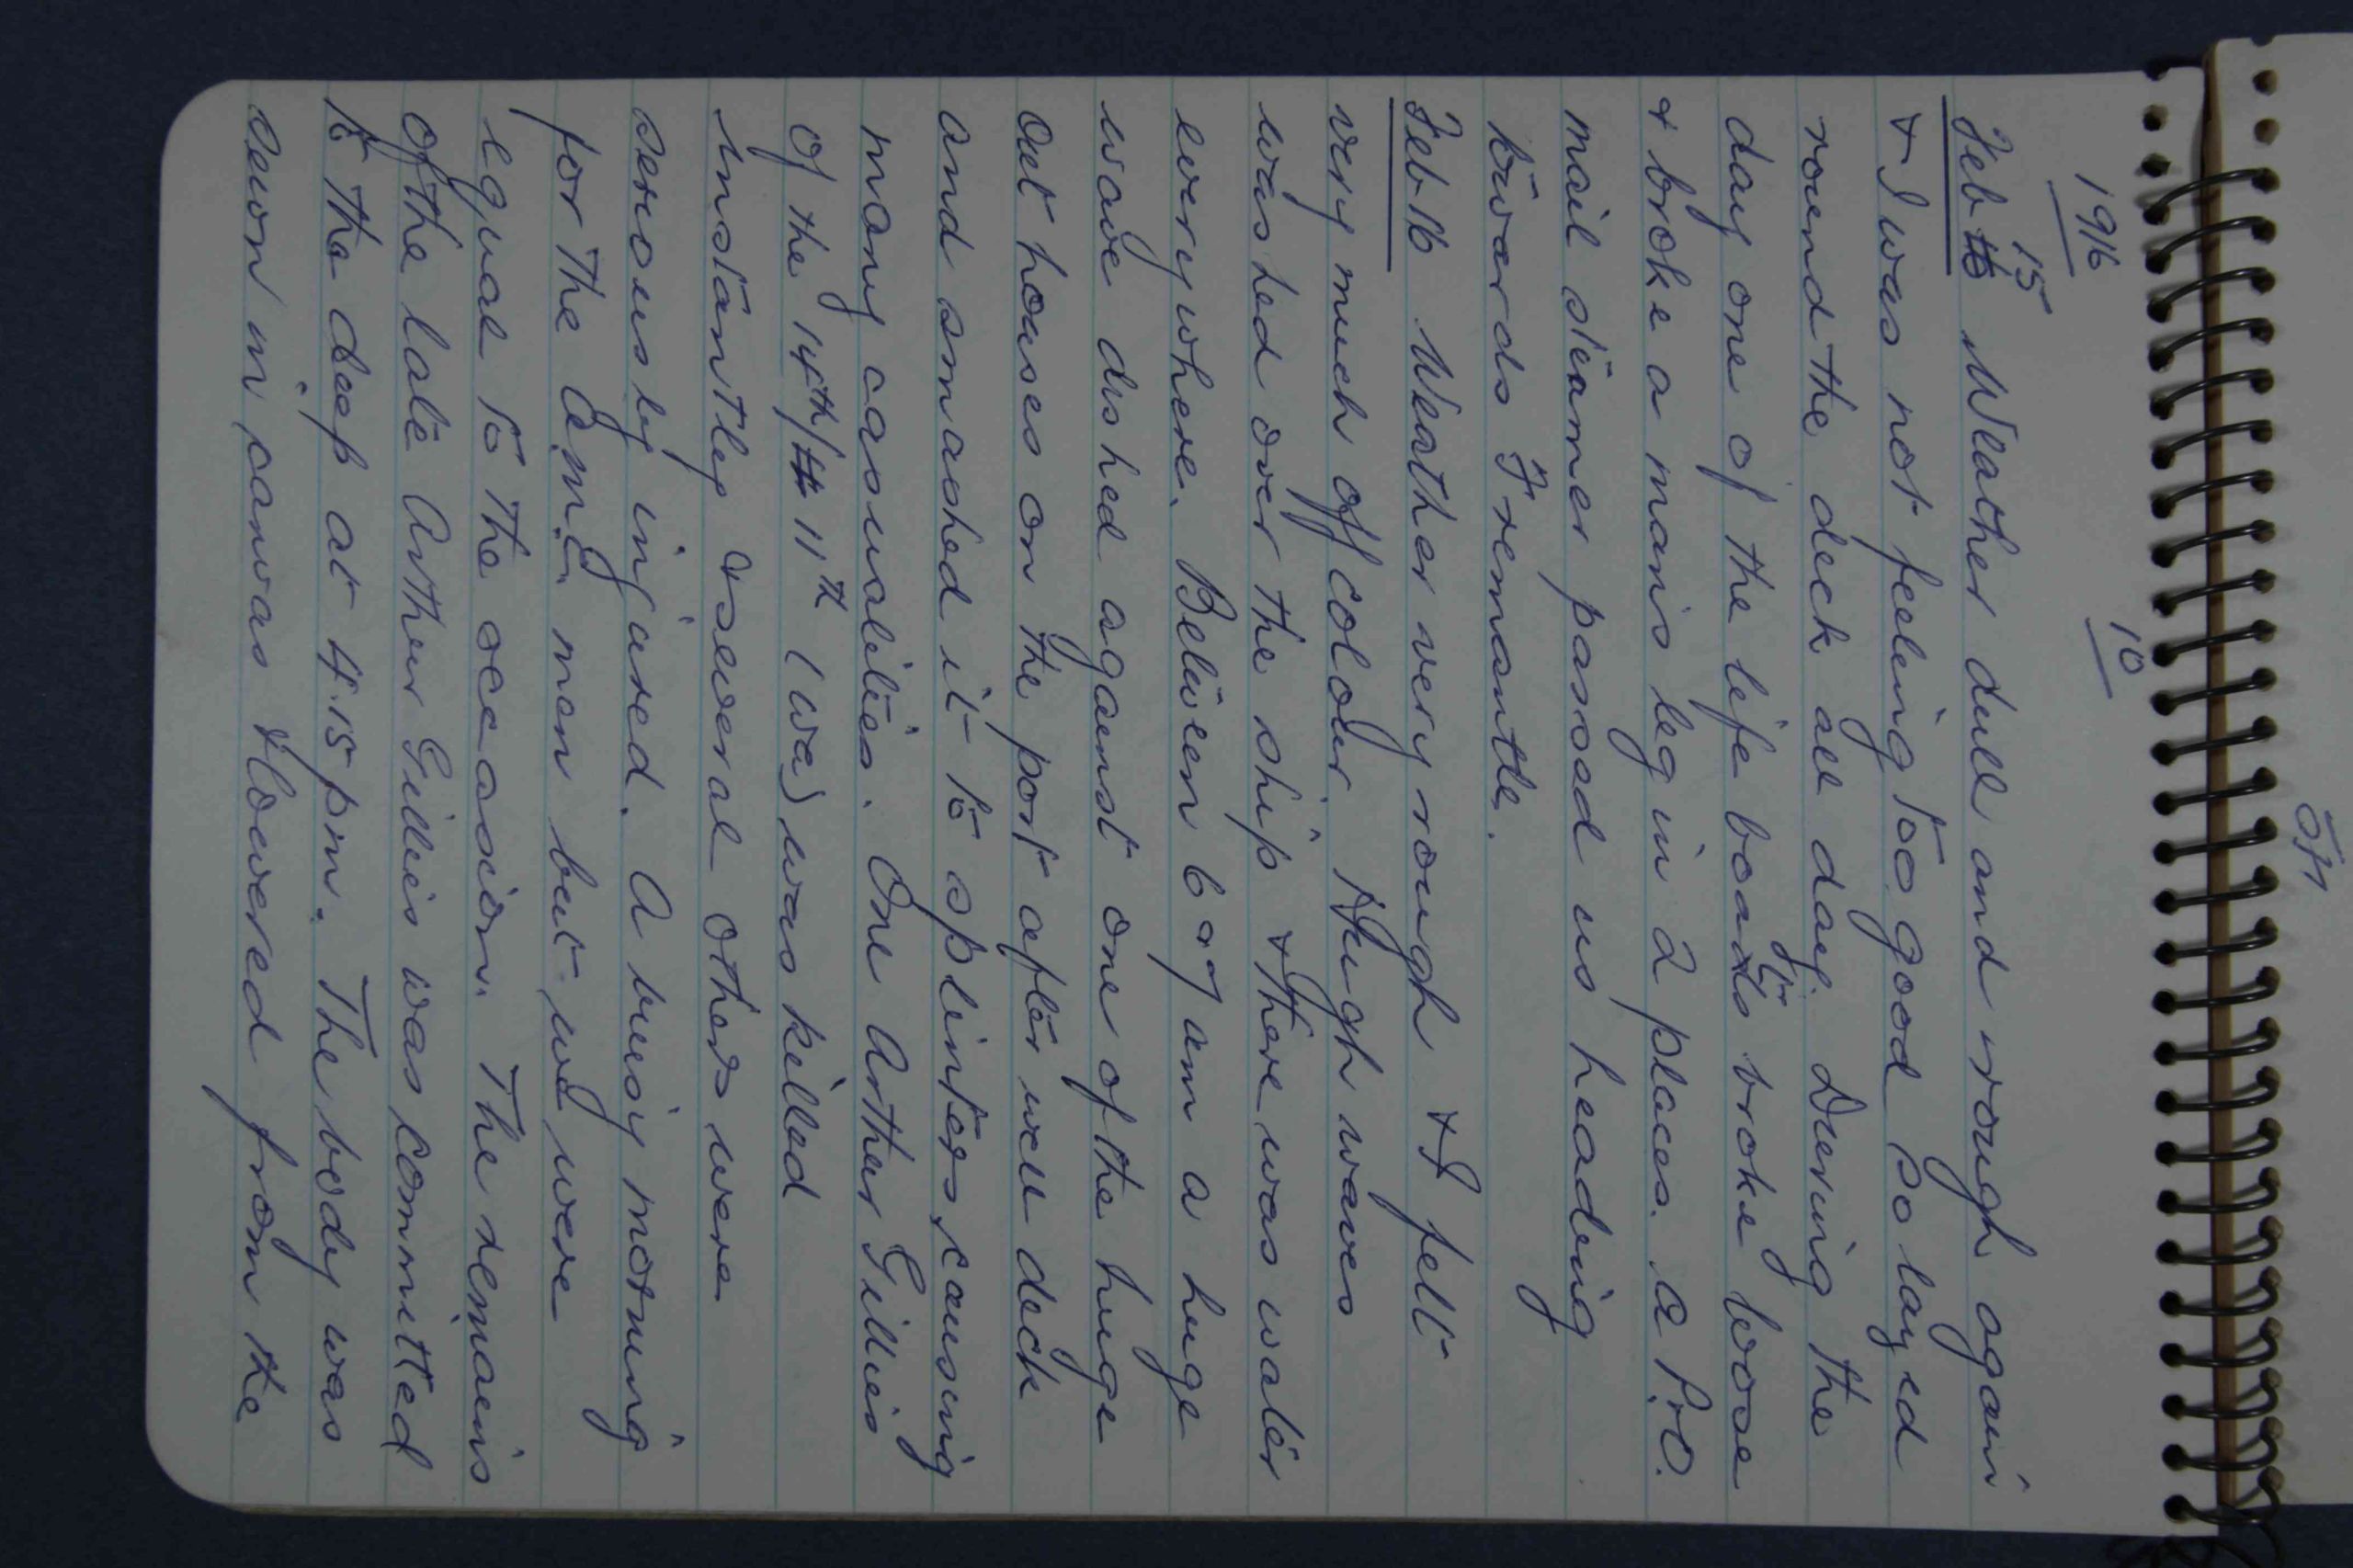 10
1916
15
Feb 16 Weather dull and rough again
& I was not feeling too good so layed
round the deck all day. During the
day one of the life boats broke loose
& broke a mans leg in 2 places. A P.&O.
mail steamer passed us heading
towards Fremantle.
Feb 16 Weather very rough & I felt
very much off colour. Hugh waves
washed over the ship & there was water
everywhere. Between 6 & 7 am a huge
wave dished against one of the huge
out houses on the port after well deck
and smashed it to splinters, causing
many casualities. One Arthur Gillies
of the 14th/ 11th (wa) was killed
instantley & several others were
seriously injured. A busy morning
for the A.M.C. men but we were
equal to the occasion. The remains
of the late Arthur Gillies was committed
to the deep at 4.15 pm. The body was
sewn in canvas & lowered from the